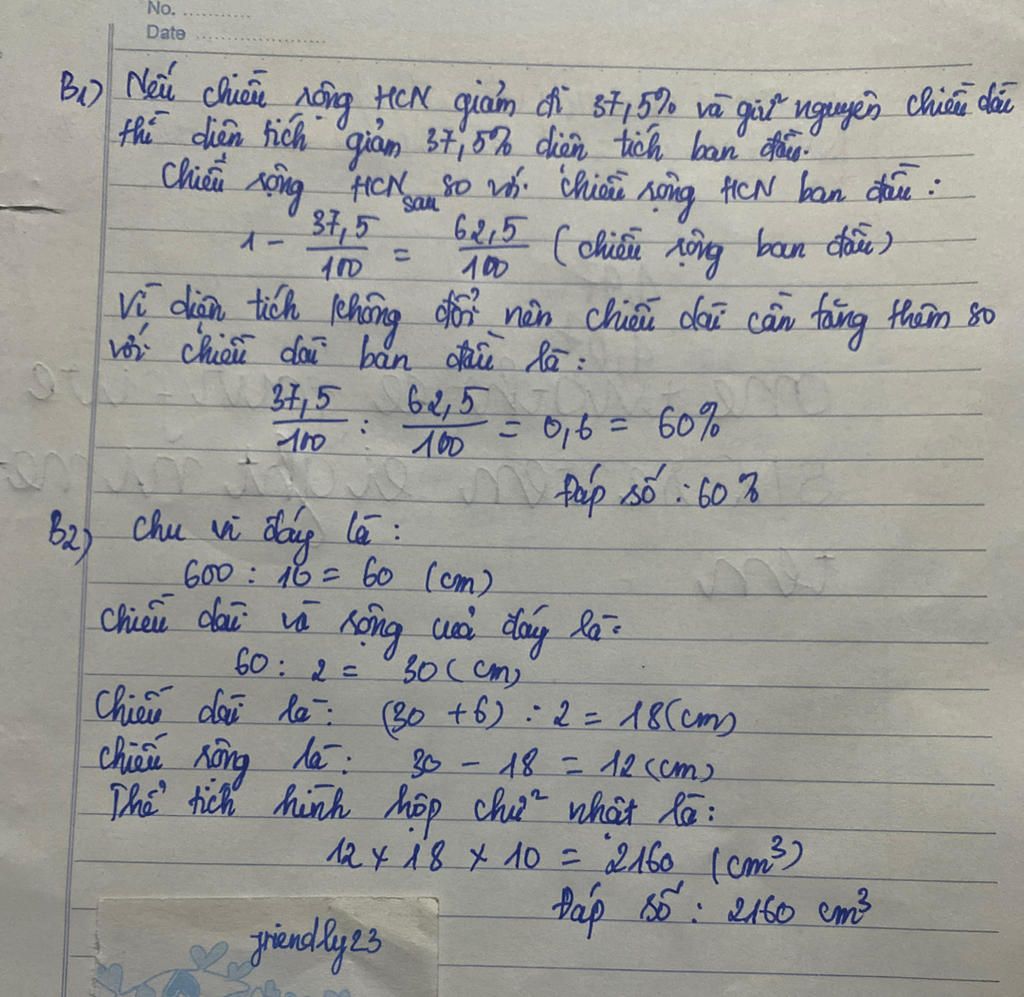 No. ............
Date ......................
B1) Nếu chiều rộng HCN giảm đi 37,5% và giữ nguyên chiều dài
thì diện tích giảm 37,5% diện tích ban đầu.
Chiều rộng HCN sau so với chiều rộng HCN ban đầu :
1 - 37,5/100 = 62,5/100 (chiều rộng ban đầu)
Vì diện tích không đổi nên chiều dài cần tăng thêm so
với chiều dài ban đầu là :
37,5/100 : 62,5/100 = 0,6 = 60%
Đáp số : 60%
B2) Chu vi đáy là :
600 : 10 = 60 (cm)
Chiều dài và rộng của đáy là :
60 : 2 = 30 (cm)
Chiều dài là : (30 + 6) : 2 = 18 (cm)
chiều rộng là : 30 - 18 = 12 (cm)
Thể tích hình hộp chữ nhật là :
12 x 18 x 10 = 2160 (cm³)
Đáp số : 2160 cm³
friendly23